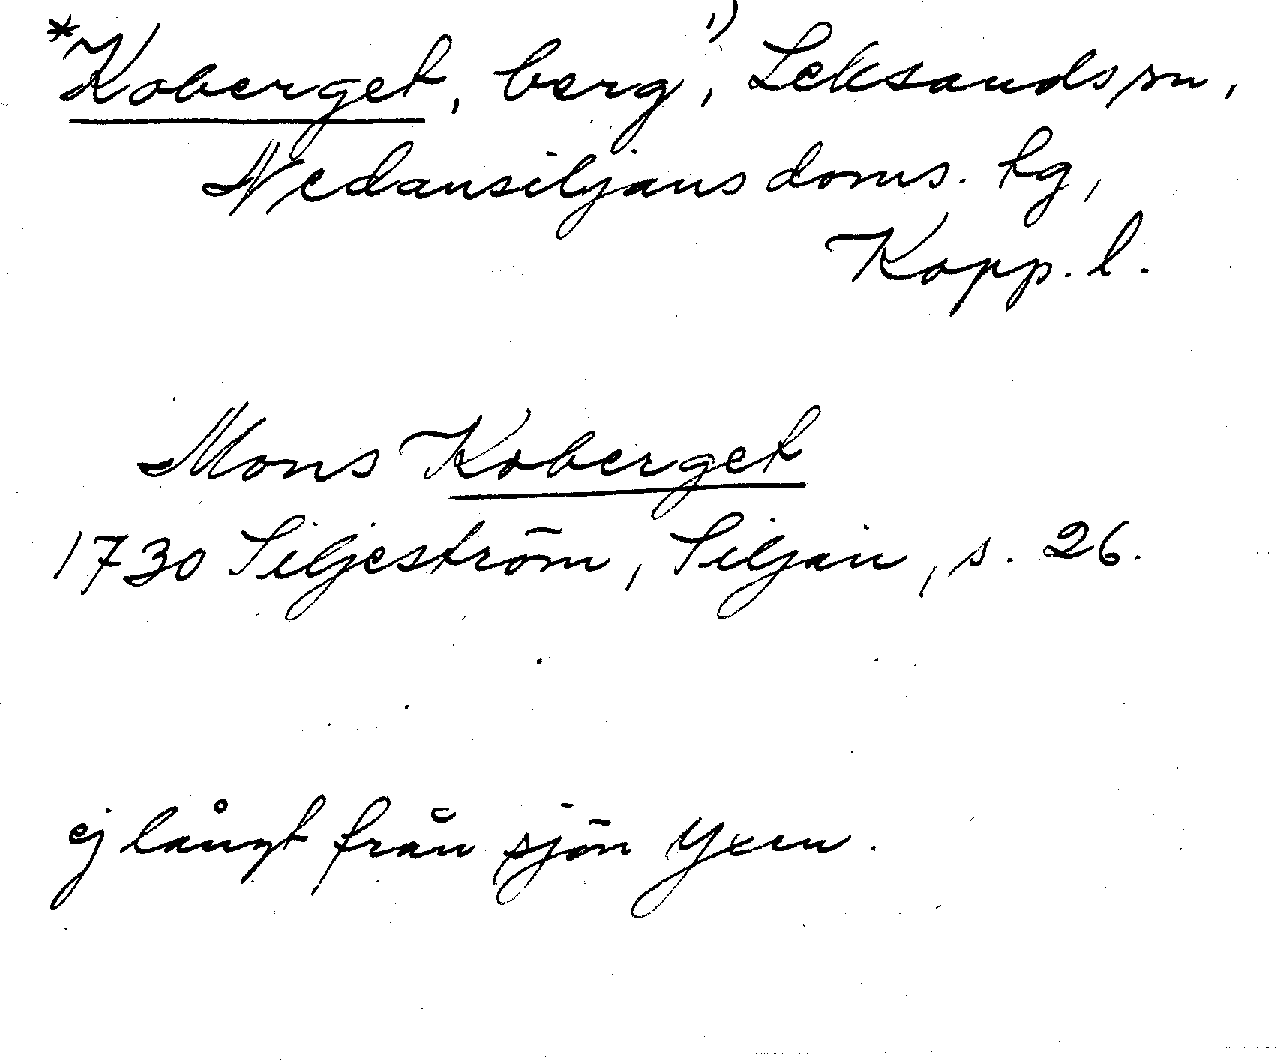 *Koberget, berg,¹⁾ Leksands sn,
Nedansiljans doms. tg,
Kopp. l.
Mons Koberget
1730 Siljeström, Siljan, s. 26.
ej långt från sjön Yxen.